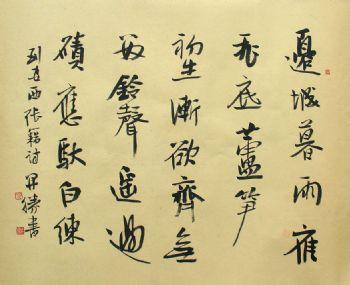 邊城暮雨雁
飛底蘆笋
初生漸欲齊無
數鈴聲遥過
磧應馱白練
到安西張籍詩勝書